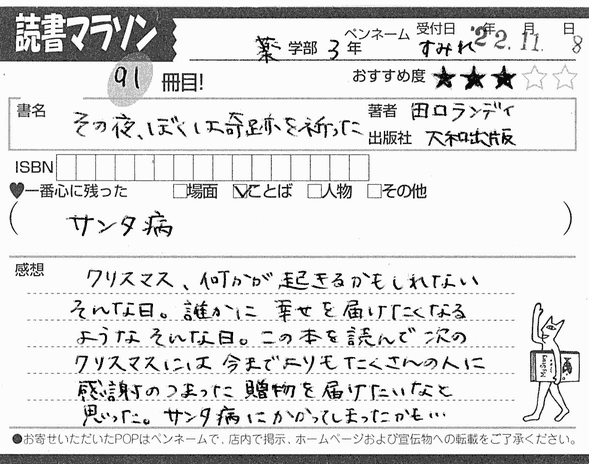 読書マラソン
薬 学部 3 年 ペンネーム すみれ 受付日 '22年 11月 8日
91 冊目! おすすめ度 ★★★☆☆
書名 その夜、ぼくは奇跡を祈った 著者 田口ランディ
出版社 大和出版
ISBN
♥一番心に残った □場面 ☑ことば □人物 □その他
(サンタ病)
感想 クリスマス、何かが起きるかもしれない
そんな日。誰かに幸せを届けたくなる
ようなそんな日。この本を読んで次の
クリスマスには今までよりもたくさんの人に
感謝のつまった贈物を届けたいなと
思った。サンタ病にかかってしまったかも…
●お寄せいただいたPOPはペンネームで、店内で掲示、ホームページおよび宣伝物への転載をご了承ください。